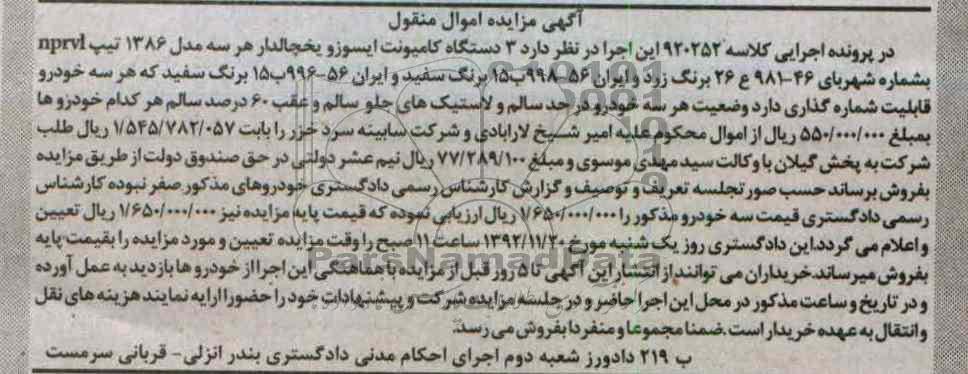 آگهی مزایده اموال منقول
در پرونده اجرایی کلاسه ۹۲۰۲۵۲ این اجرا در نظر دارد ۳ دستگاه کامیونت ایسوزو یخچالدار هر سه مدل ۱۳۸۶ تیپ nprvl
بشماره شهربای ۴۶-۹۸۱ ع ۲۶ برنگ زرد و ایران ۵۶-۹۹۸ب۱۵ برنگ سفید و ایران ۵۶-۹۹۶ب۱۵ برنگ سفید که هر سه خودرو
قابلیت شماره گذاری دارد وضعیت هر سه خودرو در حد سالم و لاستیک های جلو سالم و عقب ۶۰ درصد سالم هر کدام خودرو ها
بمبلغ ۵۵۰/۰۰۰/۰۰۰ ریال از اموال محکوم علیه امیر شیخ لارابادی و شرکت سابینه سرد خزر را بابت ۱/۵۴۵/۷۸۲/۰۵۷ ریال طلب
شرکت به پخش گیلان با وکالت سید مهدی موسوی و مبلغ ۷۷/۲۸۹/۱۰۰ ریال نیم عشر دولتی در حق صندوق دولت از طریق مزایده
بفروش برساند حسب صورتجلسه تعریف و توصیف و گزارش کارشناس رسمی دادگستری خودروهای مذکور صفر نبوده کارشناس
رسمی دادگستری قیمت سه خودرو مذکور را ۱/۶۵۰/۰۰۰/۰۰۰ ریال ارزیابی نموده که قیمت پایه مزایده نیز ۱/۶۵۰/۰۰۰/۰۰۰ ریال تعیین
و اعلام می گردد.این دادگستری روز یک شنبه مورخ ۱۳۹۲/۱۱/۲۰ ساعت ۱۱ صبح را وقت مزایده تعیین و مورد مزایده را بقیمت پایه
بفروش میرساند.خریداران می توانند از انتشار این آگهی تا ۵ روز قبل از مزایده با هماهنگی این اجرا از خودرو ها بازدید به عمل آورده
و در تاریخ و ساعت مذکور در محل این اجرا حاضر و در جلسه مزایده شرکت و پیشنهادات خود را حضورا ارایه نمایند هزینه های نقل
و انتقال به عهده خریدار است.ضمنا مجموعا و منفردا بفروش می رسد.
ب ۲۱۹ دادورز شعبه دوم اجرای احکام مدنی دادگستری بندر انزلی- قربانی سرمست
ParsNamadData